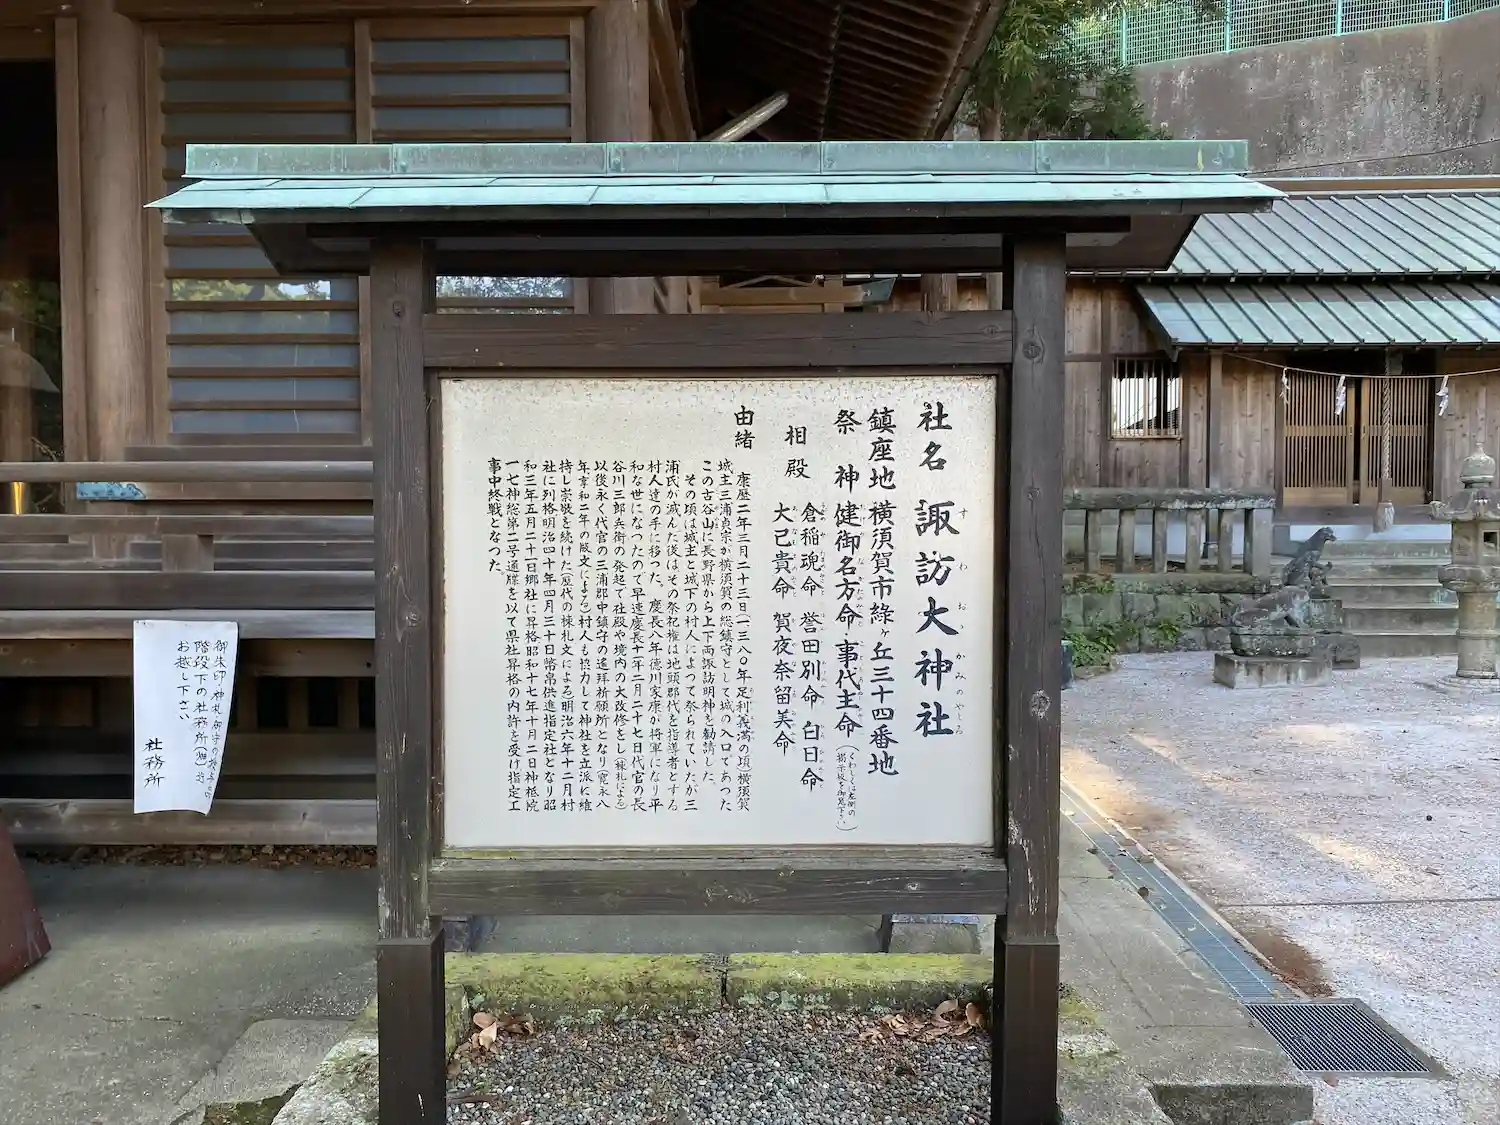 社名 諏訪大神社
すわおゝかみのやしろ
鎮座地 横須賀市緑ヶ丘三十四番地
祭神 健御名方命 事代主命
相殿 倉稲魂命 誉田別命 白日命
大己貴命 賀夜奈留美命
由緒
康歴二年三月二十三日(一三八〇年足利義満の頃横須賀
城主三浦貞宗が横須賀の総鎮守として城の入口であった
この古谷山に長野県から上下両諏訪明神を勧請した。
その頃は城主と城下の村人によって祭られていたが三
浦氏が滅んた後は、その祭祀権は地頭郡代を指導者とする
村人達の手に移った。慶長八年徳川家康が将軍になり平
和な世になったので早速慶長十一年二月二十七日代官の長
谷川三郎兵衛の発起て社殿や境内の大改修をし(棟札による)
以後永く代官の三浦郡中鎮守の遙拜祈願所となり(寛永八
年享和二年の版文による)村人も協力して神社を立派に維
持し崇敬を続けた(歴代の棟札文による)明治六年十二月村
社に列格明治四十年四月三十日幣帛供進指定社となり昭
和三年五月二十一日郷社に昇格昭和十七年十月二日神祗院
一七神総第二号通牒を以て県社昇格の内許を受け指定工
事中終戦となつた。
御朱印・神札・御守の授与は
階段下の社務所
お越し下さい
社務所